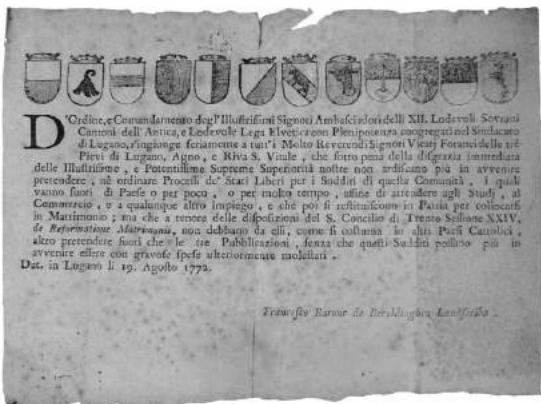 D'Ordine, e Comandamento degl'Illustrissimi Signori Ambasciadori delli XII. Lodevoli Sovrani
Cantoni dell'Antica, e Lodevole Lega Elvetica con Plenipotenza congregati nel Sindacato
di Lugano, s'ingiunge seriamente a tutt'i Molto Reverendi Signori Vicarj Foranei delle trè
Pievi di Lugano, Agno, e Riva S. Vitale, che sotto pena della disgrazia immediata
delle Illustrissime, e Potentissime Supreme Superiorità nostre non ardiscano più in avvenire
pretendere, nè ordinare Processi de' Stati Liberi per i Sudditi di questa Comunità, i quali
vanno fuori di Paese o per poco, o per molto tempo, affine di attendere agli Studj, al
Commercio, o a qualunque altro impiego, e che poi si restituiscono in Patria per colocarsi
in Matrimonio; ma che a tenore delle disposizioni del S. Concilio di Trento Sessione XXIV.
de Reformatione Matrimonii, non debbano da essi, come si costuma in altri Paesi Cattolici,
altro pretendere fuori che le tre Pubblicazioni, senza che questi Sudditi possino più in
avvenire essere con gravose spese ulteriormente molestati.
Dat. in Lugano li 19. Agosto 1772.
Francesco Barone de Beroldingben Landscriba.